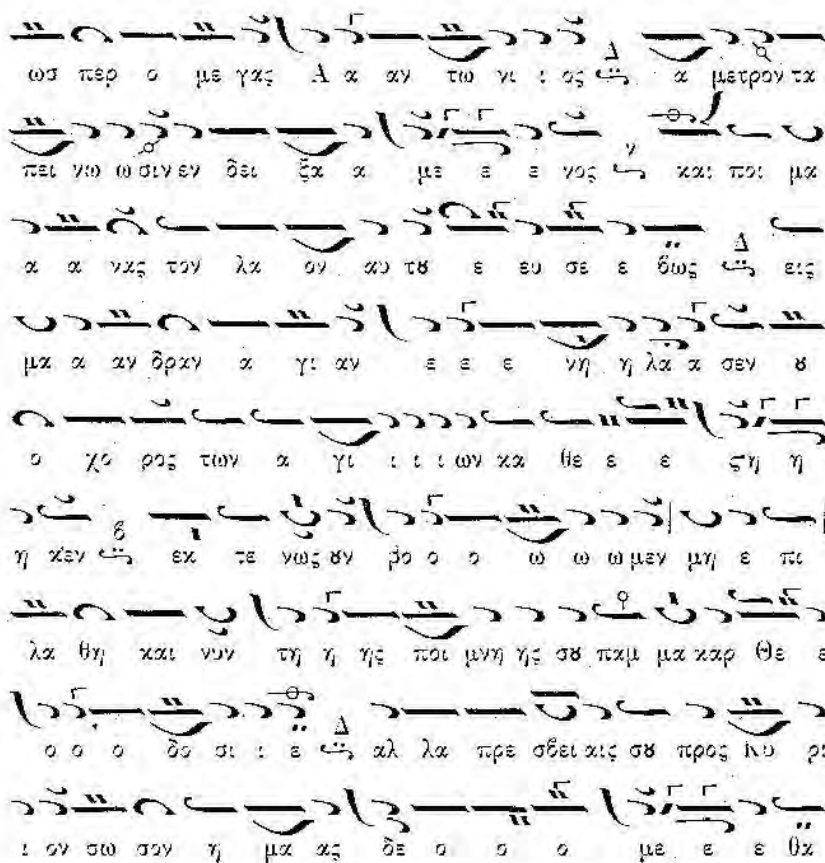 ωσ περ ο με γας Α α αν τω νι ι ος Δ α μετρον τα
πει νω ω σιν εν δει ξα α με ε ε νος ν και ποι μα
α α νας τον λα ον αυ τȣ ε ευ σε ε βως Δ εις
μα α αν δραν α γι αν ε ε ε νη η λα α σεν ȣ
ο χο ρος των α γι ι ι ι ων κα θε ε ε ςη η
η κεν β εκ τε νως ȣν βο ο ο ω ω ω μεν μη ε πι
λα θη και νυν τη η ης ποι μνη ης σȣ παμ μα καρ Θε ε
ο ο ο δο σι ι ε Δ αλ λα πρε σβει αις σȣ προς Κυ ρι
ι ον σω σον η μα ας δε ο ο ο με ε ε θα